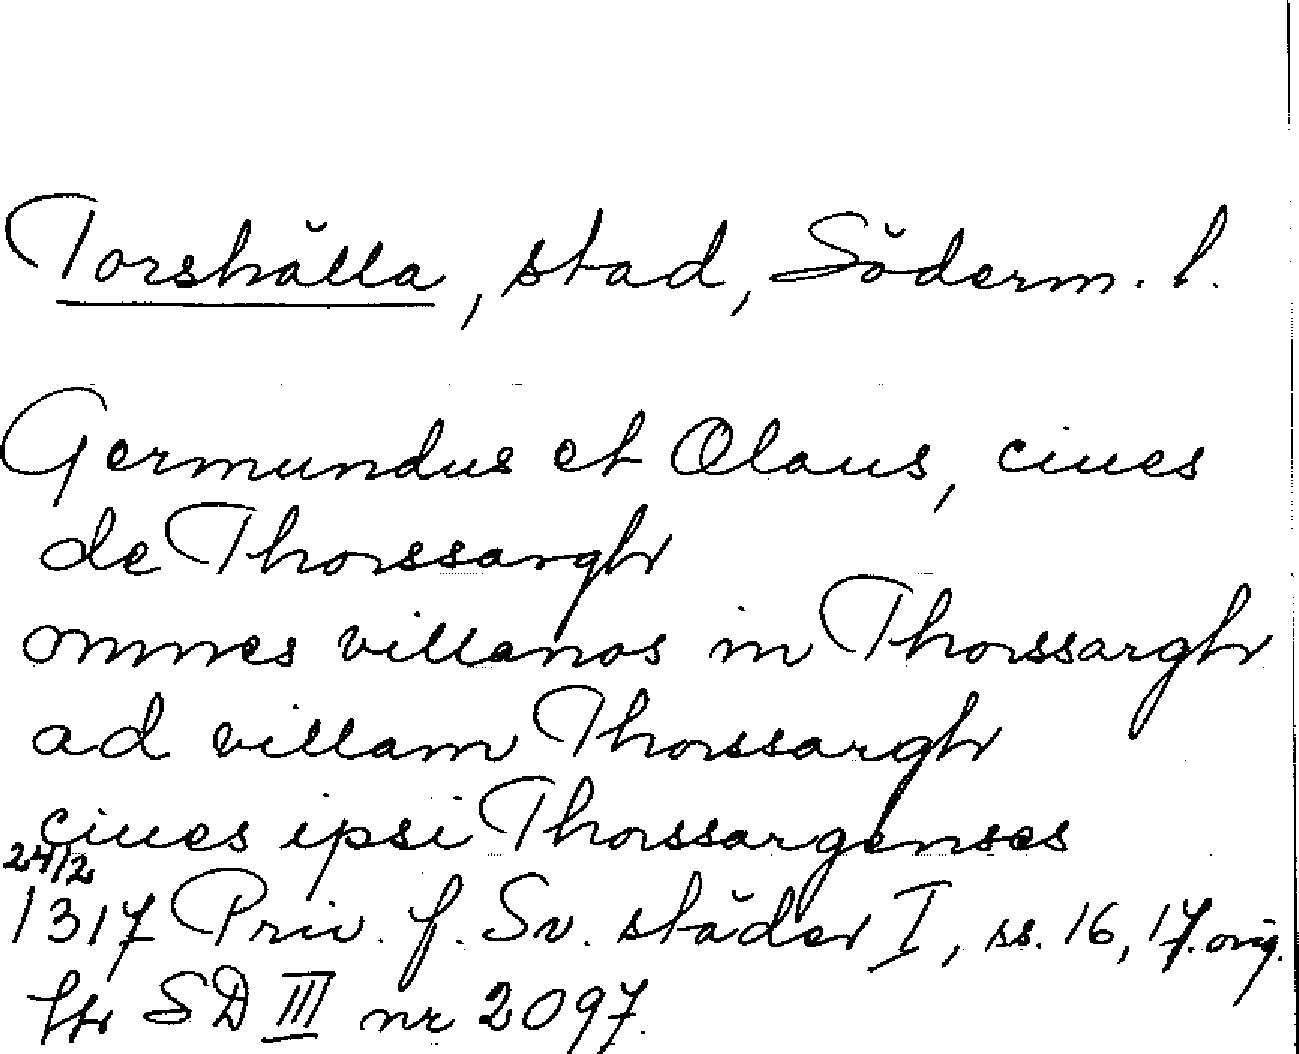 Torshälla, stad, Söderm. l.
Germundus et Olaus, ciues
de Thorssargh
omnes villanos in Thorssargh
ad villam Thorssargh
ciues ipsi Thorssargenses
24/2
1317 Priv. f. Sv. städer I, ss. 16, 17. orig.
SD III nr 2097.